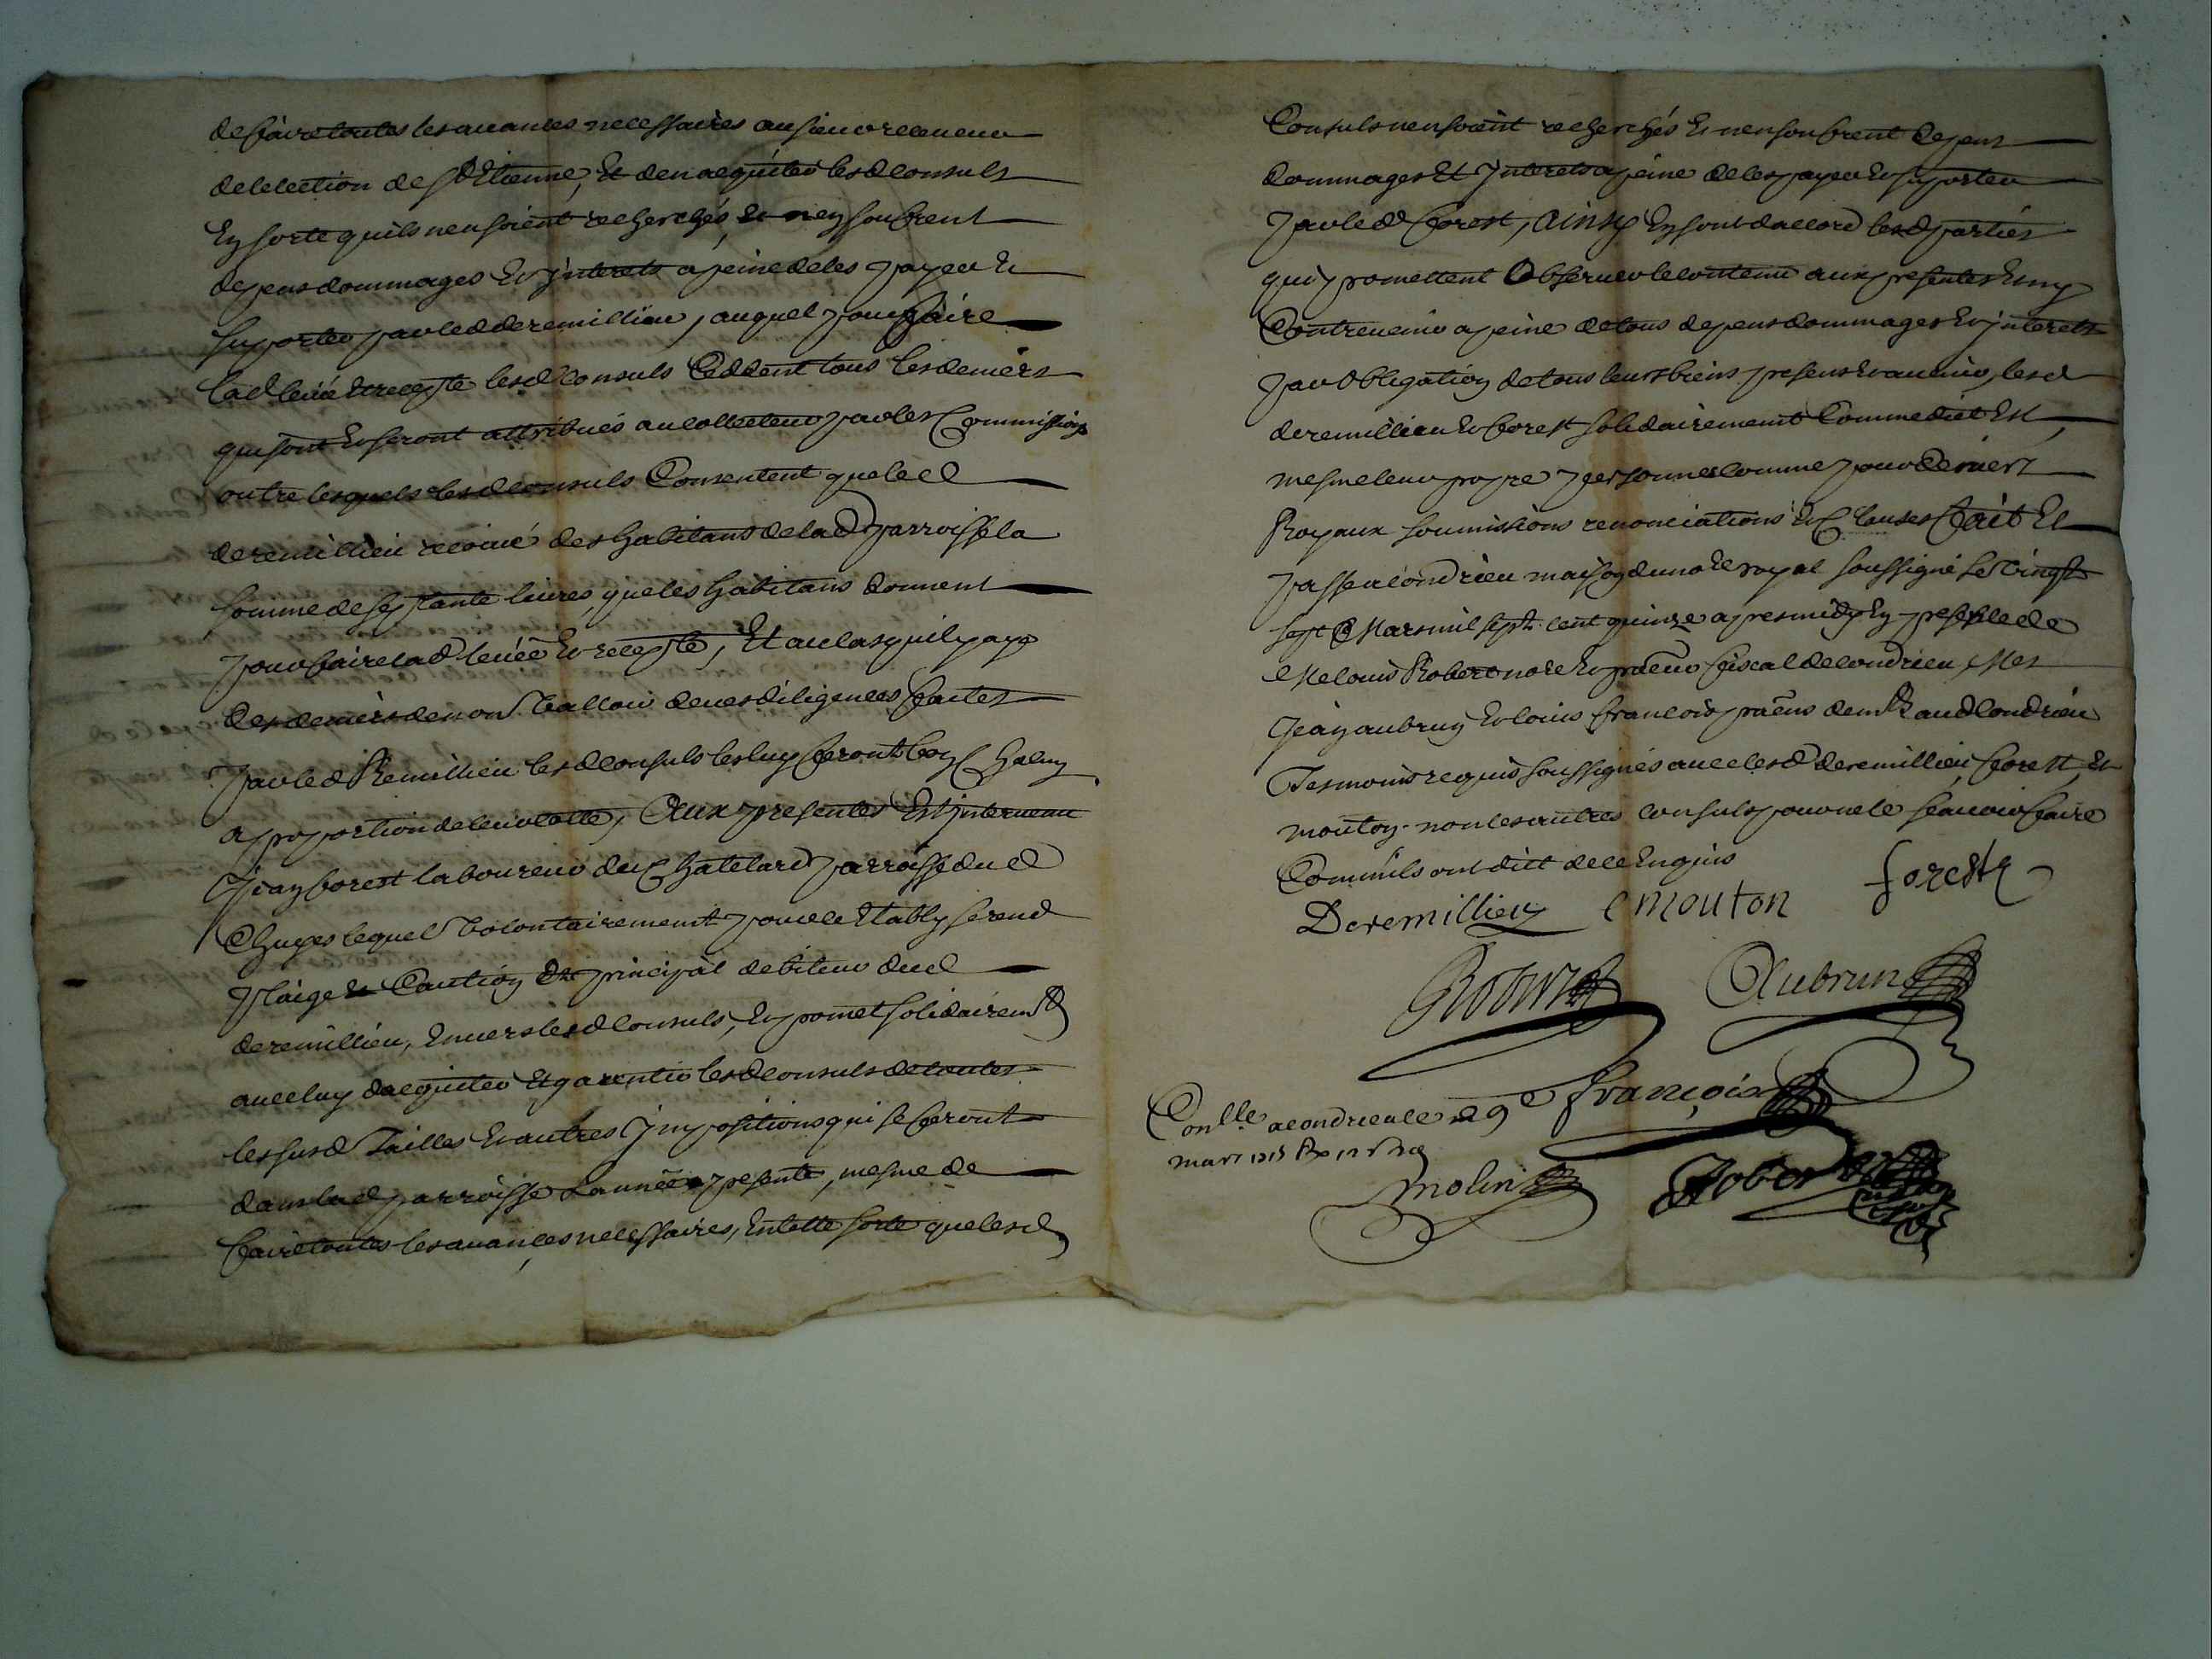 de faire toutes les auances necessaires au sieur receueur
de lelection de St Etienne, Et den acquiter lesd consuls
En sorte quils nen soient recherchés, et nen soufrent
depens dommages Et jnterets a peine de les payer Et
suporter par led deremillieu, auquel pour faire
lad leuée et recepte lesd consuls Ceddent tous les deniers
qui sont Et seront attribués au collecteur par les Commissions
outre lesquels lesd consuls Consentent que led
deremillieu recoiue des habitans de lad parroisse la
somme de septante liures, que les habitans donnent
pour faire lad leuée Et recepte, Et au cas quil y aye
des deniers de non valloir deues diligences faites
par led Remillieu lesd consuls les luy feront bon Chacun
a proportion de leur cotte, Aux presentes Est jnteruenu
Jean forest laboureur du Chatelard parroisse dud
Chuyes lequel volontairement pour ce Etably se rend
plaige et Caution Et principal debiteur dud
deremillieu, Enuers lesd consuls, Et promet solidairemt
auec luy dacquiter Et garentir lesd consuls de toutes
les susd Tailles Et autres Jmpositions qui se feront
dans lad parroisse Lannée presente, mesme de
faire toutes les auances necessaires, En telle sorte que lesd
Consuls nen soient recherchés Et nen soufrent depens
dommages Et Jnterets a peine de les payer Et suporter
par led forest, Ainsy En sont daccord lesd parties
qui promettent Obseruer le contenu aux presentes Et ny
Contreuenir a peine de tous depens dommages Et jnterets
par Obligation de tous leurs biens presens Et auenir, lesd
deremillieu Et forest solidairement Comme dict Est,
mesme leur propre personnes comme pour deniers
Royaux soumissions renonciations Et Clauses fait Et
passé a condrieu maison du nore royal soussigné le vingt
sept Mars mil sept cent quinze apres midy En presence de
Me louis Robert nore Et procur fiscal de condrieu, Mes
Jean aubrun Et louis francois pratiens demt aud Condrieu
Tesmoins requis soussignés auec lesd deremillieu, forest, et
mouton. non les autres consuls pour ne le scauoir faire
Comm'ils ont dict de ce Enquis
Deremillieu mouton forest
Robert Aubrun
françois
Conlle a condrieu le 29e
mars 1715
molin Robert